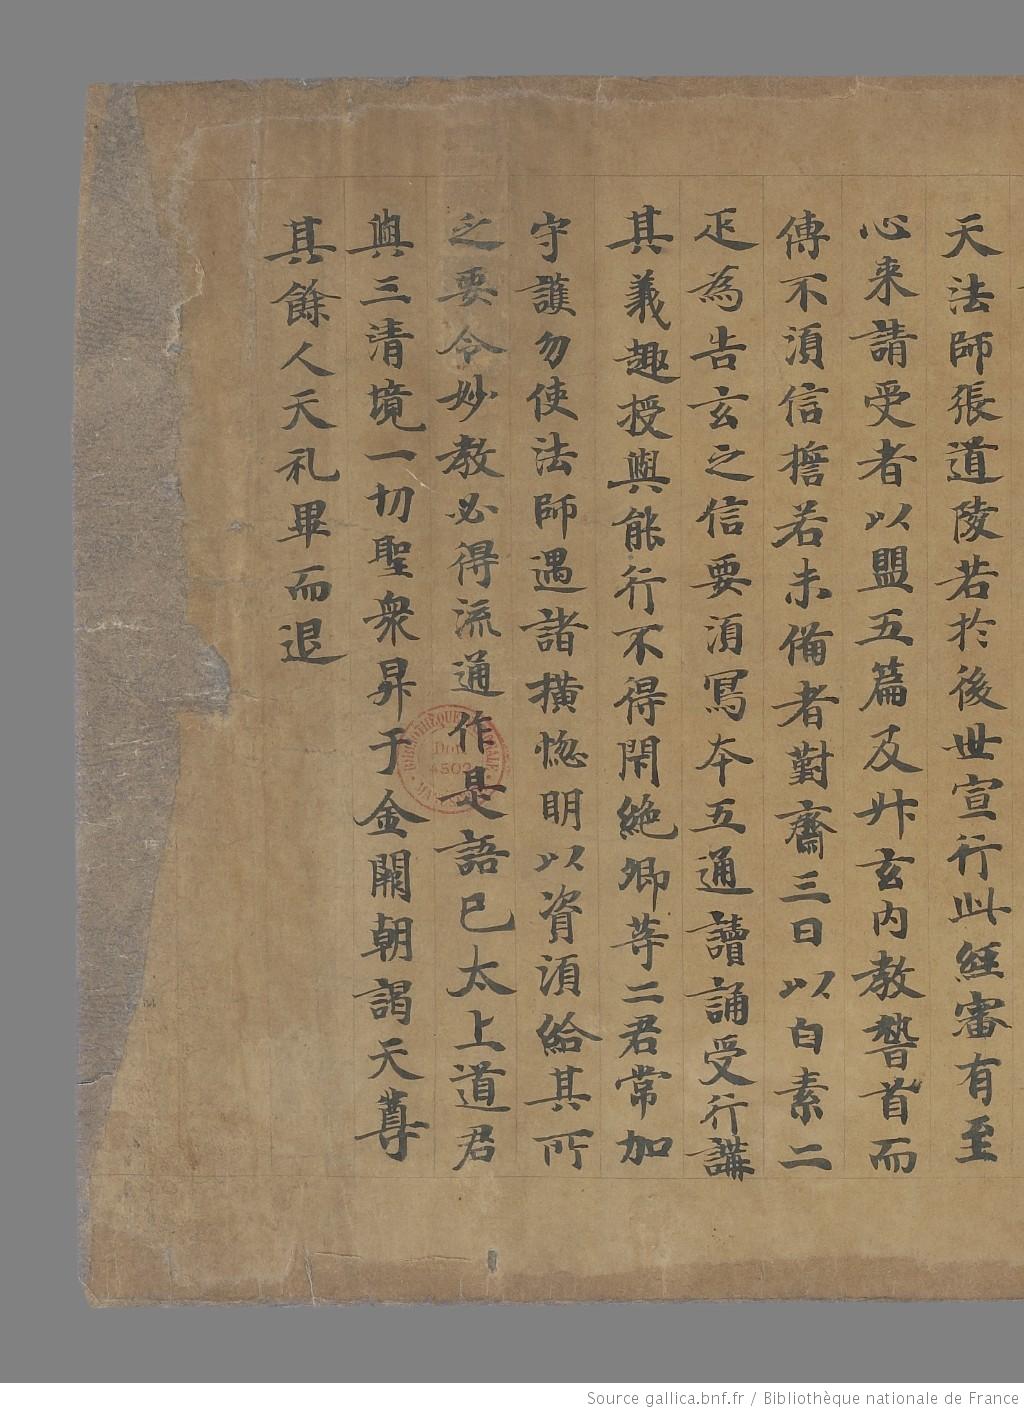 天法師張道陵若於後世宣行此經審有至
心来請受者以盟五篇及昇玄内教誓首而
傳不湏信擔若未俻者對齋三日以白素二
疋為告玄之信要湏寫夲五通讀誦受行講
其義趣授與能行不得閇絶卿等二君常加
守護勿使法師遇諸横惚明以資湏給其所
之要令妙教必得流通作是語已太上道君
與三清境一切聖衆昇于金闕朝謁天尊
其餘人天礼畢而退
BIBLIOTHÈQUE
Don
4502
Source gallica.bnf.fr / Bibliothèque nationale de France